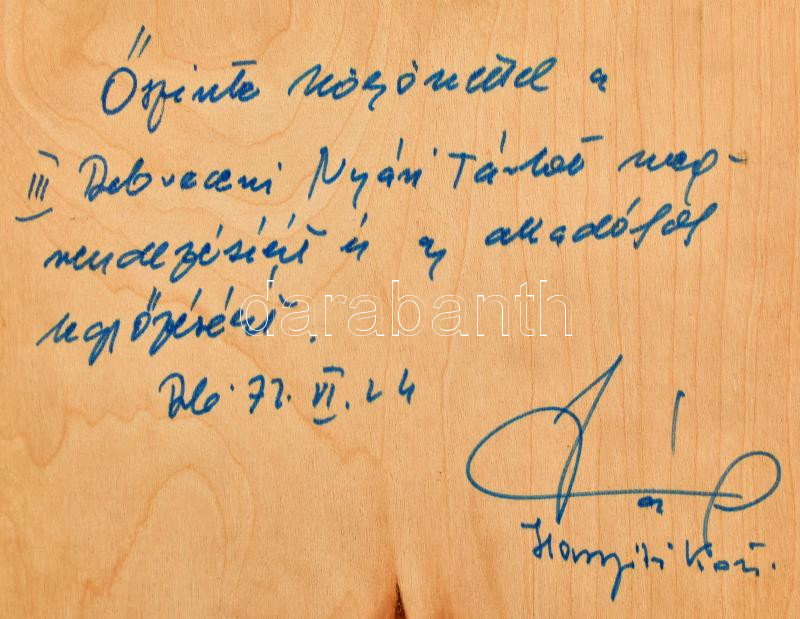 Őszinte köszönettel a
III Debreceni Nyári Tárlat meg-
rendezéséért és az akadályok
legyőzéséért.
Db. 72. VI. 24
darabanth